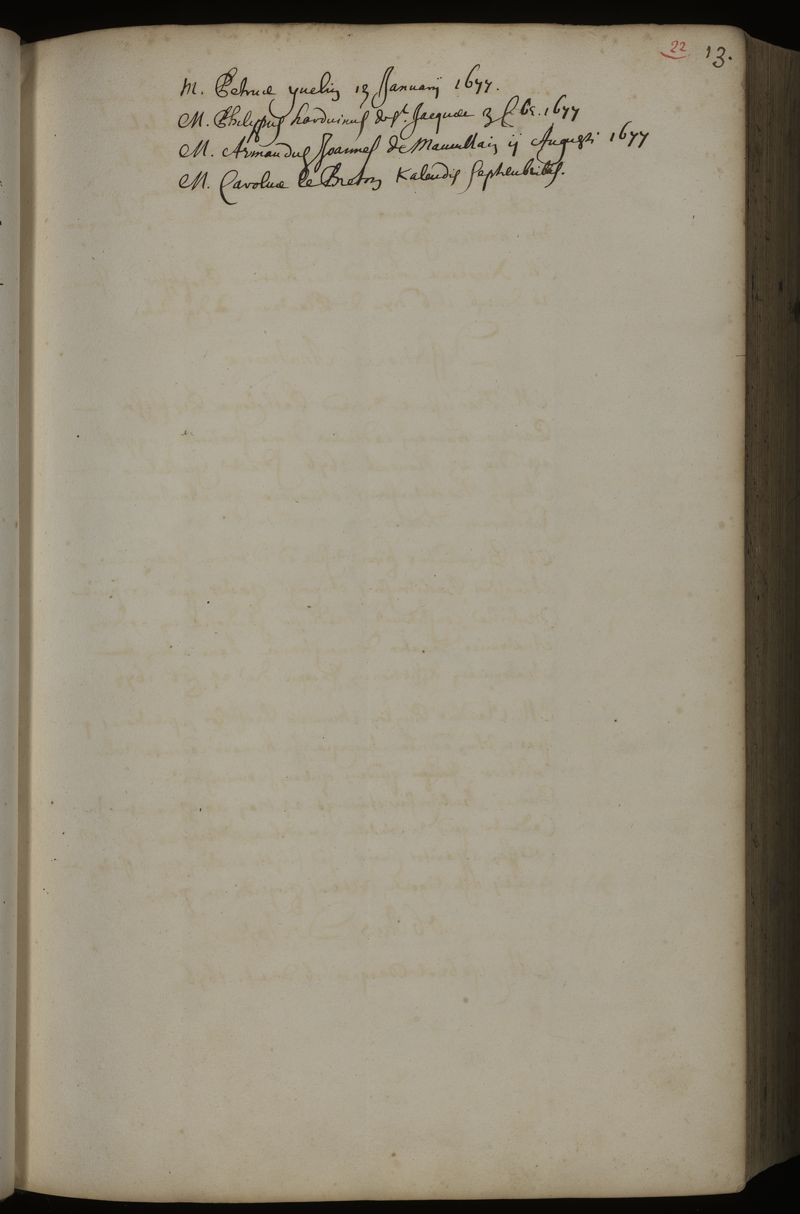 22 13.
M. Petrus yuelin 13 Januarij 1677.
M. Philippus harduinus de St. Jacques 3 1677
M. Armandus Joannes de Mauuillain ij Augusti 1677
M. Carolus le Breton Kalendis Septembribus.